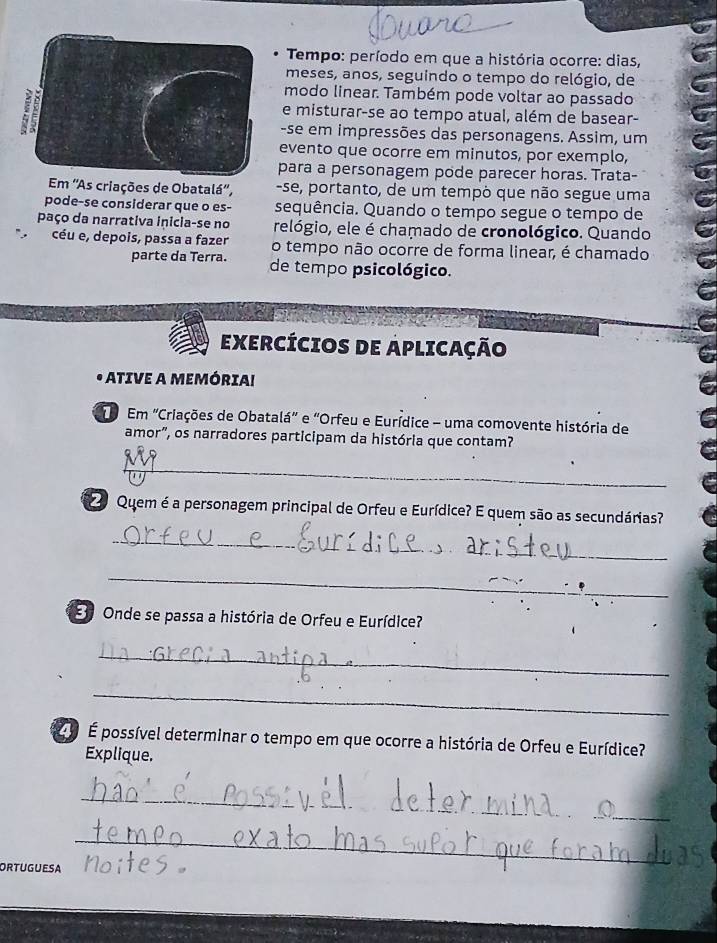 • Tempo: período em que a história ocorre: dias,
meses, anos, seguindo o tempo do relógio, de
modo linear. Também pode voltar ao passado
e misturar-se ao tempo atual, além de basear-
-se em impressões das personagens. Assim, um
evento que ocorre em minutos, por exemplo,
para a personagem pode parecer horas. Trata-
-se, portanto, de um tempo que não segue uma
sequência. Quando o tempo segue o tempo de
relógio, ele é chamado de cronológico. Quando
o tempo não ocorre de forma linear, é chamado
de tempo psicológico.
SHUTTERSTOCK
Em "As criações de Obatalá",
pode-se considerar que o es-
paço da narrativa inicia-se no
céu e, depois, passa a fazer
parte da Terra.
EXERCÍCIOS DE APLICAÇÃO
• ATIVE A MEMÓRIA!
1 Em "Criações de Obatalá" e "Orfeu e Eurídice – uma comovente história de
amor", os narradores participam da história que contam?
2 Quem é a personagem principal de Orfeu e Eurídice? E quem são as secundárias?
Orfeu e Eurídice, aristeu
3 Onde se passa a história de Orfeu e Eurídice?
na Grecia antiga.
4 É possível determinar o tempo em que ocorre a história de Orfeu e Eurídice?
Explique.
não é possivél determina o
tempo exato mas supor que foram duas
noites.
ORTUGUESA